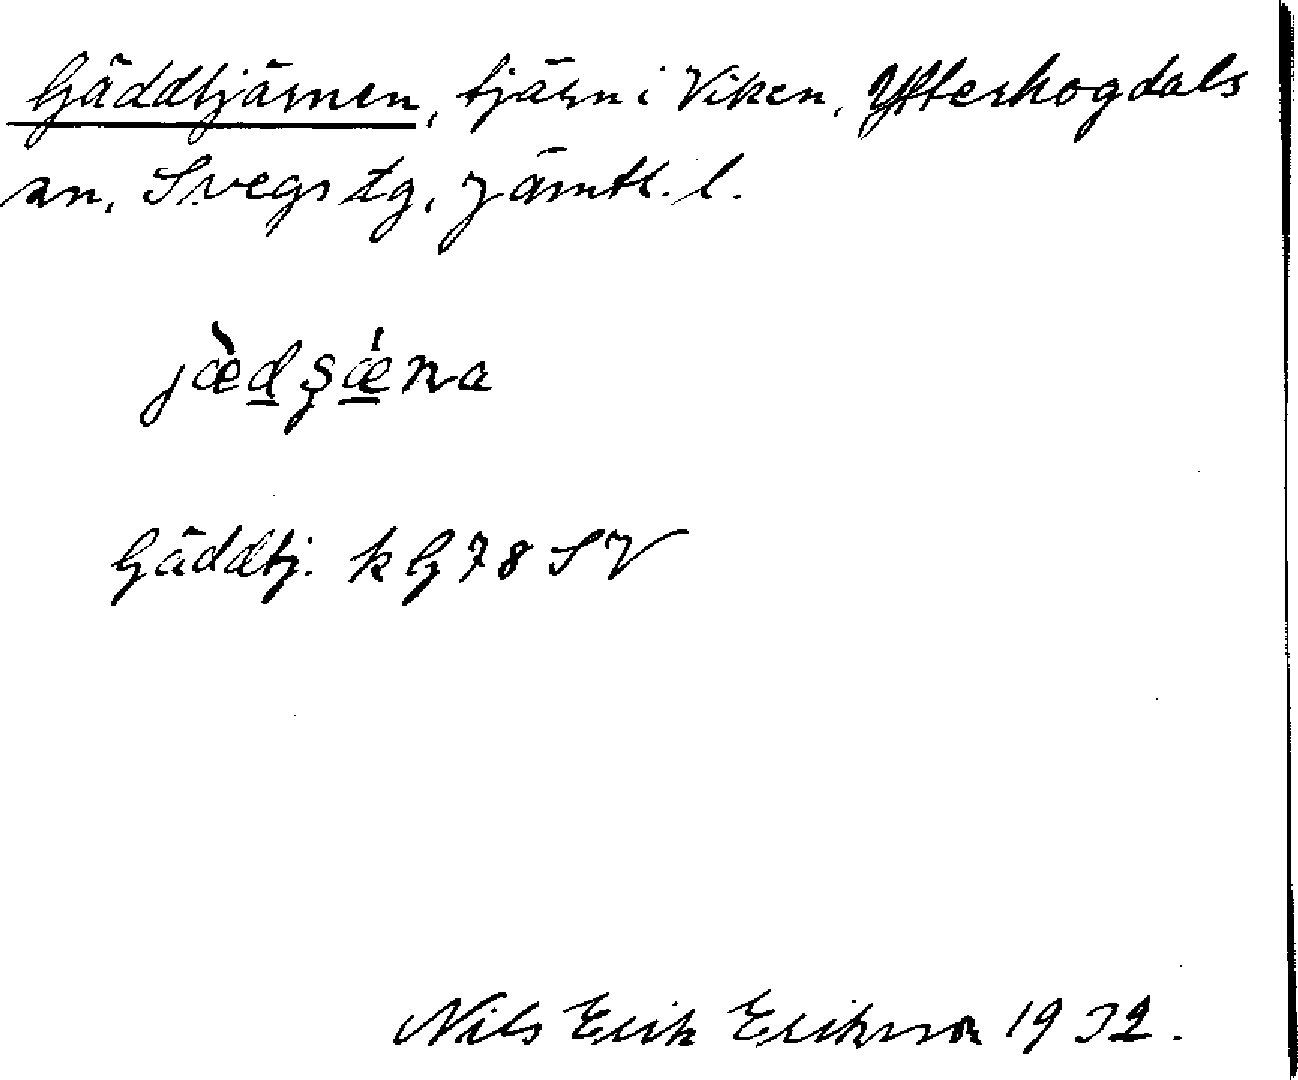 Gäddtjärnen, tjärn i Viken, Ytterhogdals
sn, Svegs tg, Jämtl. l.
jæ̀d̲ʂǽ̲na
Gäddtj. k G78 SV
Nils Erik Erikson 1932.